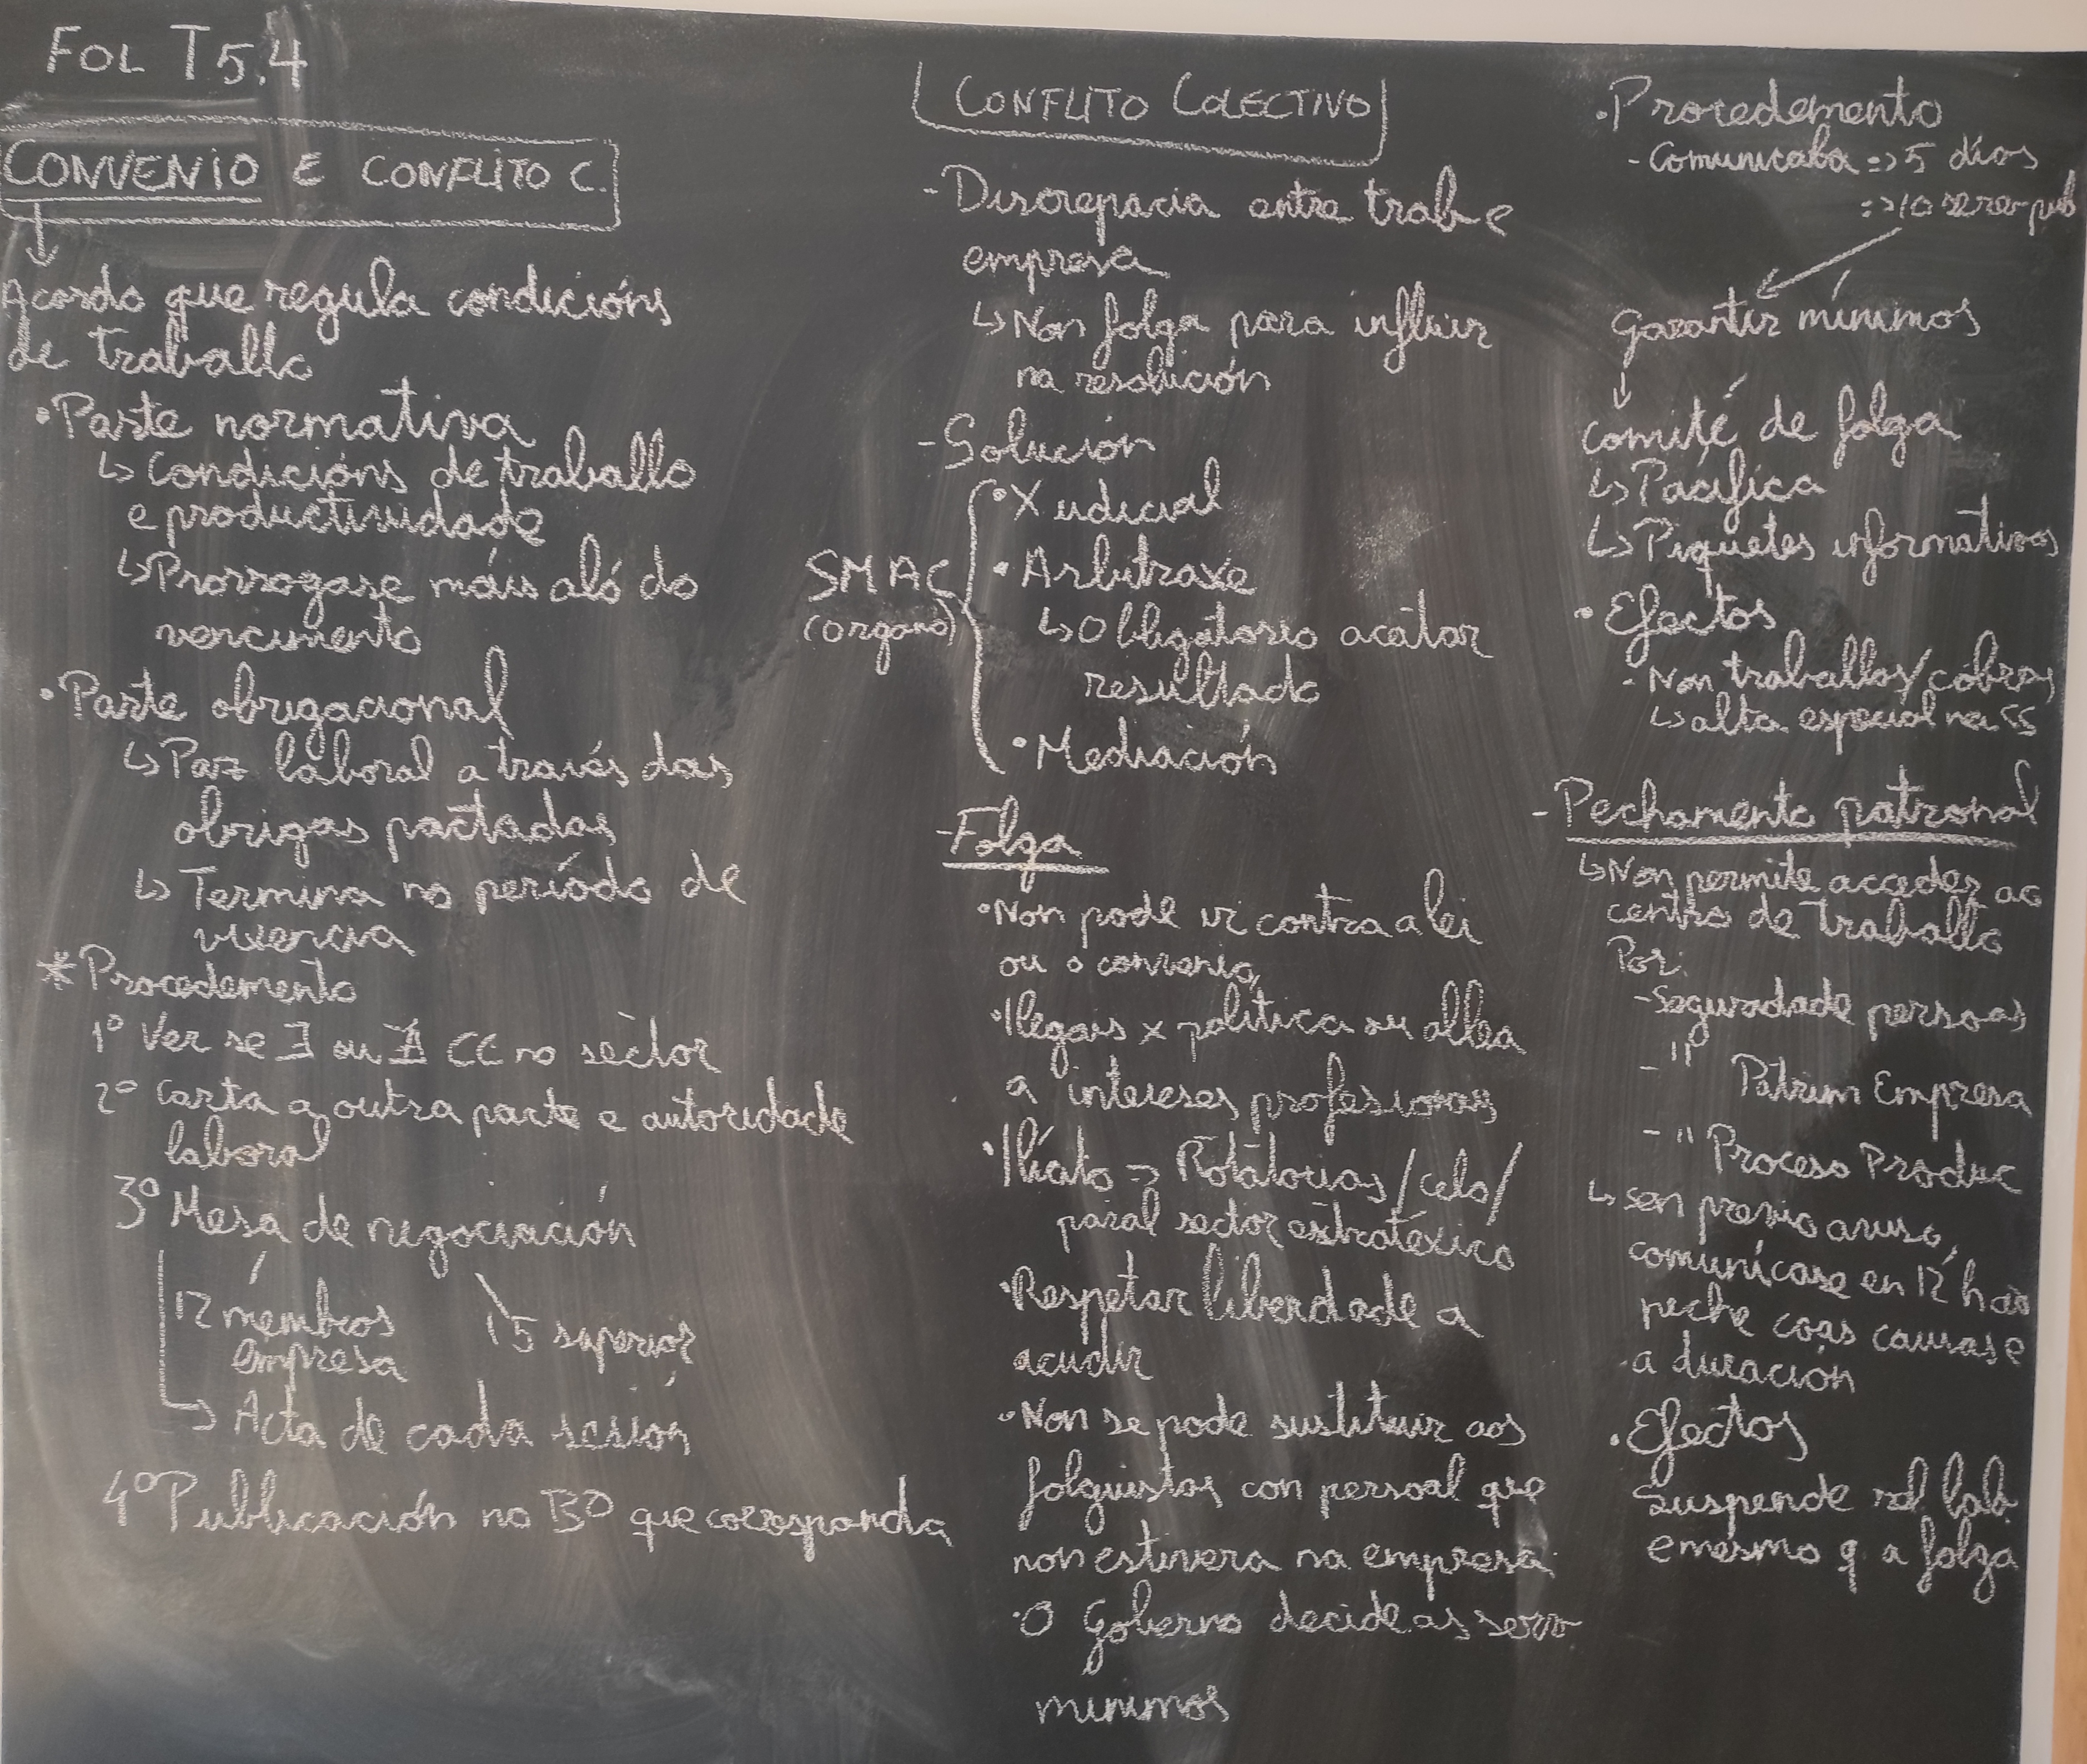 FOL T5.4
CONVENIO E CONFLITO C.
Acordo que regula condicións
de traballo
• Parte normativa
↳ Condicións de traballo
e productividade
↳ Prorrogase máis aló do
vencimento
• Parte obrigacional
↳ Paz laboral a través das
obrigas pactadas
↳ Termina no período de
vixencia
* Procedemento
1º Ver se ∃ ou ∄ CC no sector
2º Carta a outra parte e autoridade
laboral
3º Mesa de negociación
12 membros
empresa
15 superior
→ Acta de cada sesión
4º Publicación no BO que corresponda
CONFLITO COLECTIVO
- Discrepacia entre trab e
empresa
↳ Non folga para influir
na resolución
- Solución
SMAC
(órgano)
• Xudicial
• Arbitraxe
↳ Obligatorio acatar
resultado
• Mediación
- Folga
• Non pode ir contra a lei
ou o convenio
• Ilegais x política ou allea
a intereses profesionais
• Ilícito → Rotatorias/celo/
paral sector estratéxico
• Respetar liberdade a
acudir
• Non se pode sustituir aos
folguistas con persoal que
non estivera na empresa
• O Goberno decide as serv
mínimos
• Procedemento
- Comunicala => 5 días
=> 10 se pub
Garantir mínimos
↓
comité de folga
↳ Pacífica
↳ Piquetes informativos
• Efectos
- Non traballas/cobras
↳ alta especial na SS
- Pechamento patronal
↳ Non permite acceder ao
centro de traballo
Por:
- Seguridade persoas
- " Patrim Empresa
- " Proceso Produc
↳ sen previo aviso,
comunícase en 12 h ao
peche coas causas e
a duración
• Efectos
Suspende rel lab
e mesmo q a folga